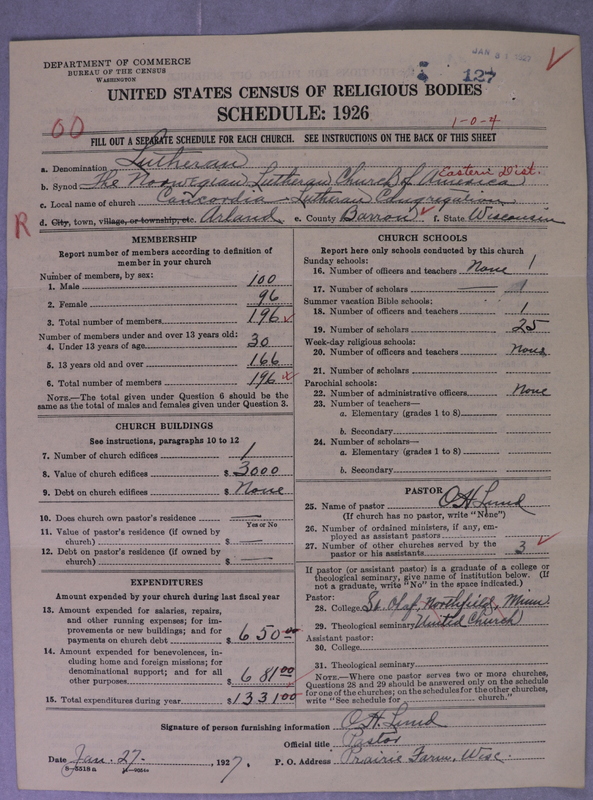 DEPARTMENT OF COMMERCE
BUREAU OF THE CENSUS
WASHINGTON
JAN 31 1927
127
UNITED STATES CENSUS OF RELIGIOUS BODIES
SCHEDULE: 1926
60
1-0-4
FILL OUT A SEPARATE SCHEDULE FOR EACH CHURCH. SEE INSTRUCTIONS ON THE BACK OF THIS SHEET
a. Denomination Lutheran
b. Synod The Norwegian Lutheran Church of America Eastern Dist.
c. Local name of church Concordia Lutheran Congregation
R
d. City, town, village, or township, etc. Arland e. County Barron f. State Wisconsin
MEMBERSHIP
Report number of members according to definition of
member in your church
Number of members, by sex:
1. Male 100
2. Female 96
3. Total number of members 196
Number of members under and over 13 years old:
4. Under 13 years of age 30
5. 13 years old and over 166
6. Total number of members 196
NOTE.—The total given under Question 6 should be the
same as the total of males and females given under Question 3.
CHURCH BUILDINGS
See instructions, paragraphs 10 to 12
7. Number of church edifices 1
8. Value of church edifices $ 3000
9. Debt on church edifices $ None
10. Does church own pastor's residence —
Yes or No
11. Value of pastor's residence (if owned by
church) $ —
12. Debt on pastor's residence (if owned by
church) $ —
EXPENDITURES
Amount expended by your church during last fiscal year
13. Amount expended for salaries, repairs,
and other running expenses; for im-
provements or new buildings; and for
payments on church debt $ 650 00
14. Amount expended for benevolences, in-
cluding home and foreign missions; for
denominational support; and for all
other purposes $ 681 00
15. Total expenditures during year $ 1331 00
CHURCH SCHOOLS
Report here only schools conducted by this church
Sunday schools:
16. Number of officers and teachers None 1
17. Number of scholars — 1
Summer vacation Bible schools:
18. Number of officers and teachers 1
19. Number of scholars 25
Week-day religious schools:
20. Number of officers and teachers None
21. Number of scholars
Parochial schools:
22. Number of administrative officers None
23. Number of teachers—
a. Elementary (grades 1 to 8)
b. Secondary
24. Number of scholars—
a. Elementary (grades 1 to 8)
b. Secondary
PASTOR
25. Name of pastor O H Lund
(If church has no pastor, write "None")
26. Number of ordained ministers, if any, em-
ployed as assistant pastors
27. Number of other churches served by the
pastor or his assistants 3
If pastor (or assistant pastor) is a graduate of a college or
theological seminary, give name of institution below. (If
not a graduate, write "No" in the space indicated.)
Pastor:
28. College St. Olaf, Northfield, Minn.
29. Theological seminary United Church
Assistant pastor:
30. College
31. Theological seminary
NOTE.—Where one pastor serves two or more churches,
Questions 28 and 29 should be answered only on the schedule
for one of the churches; on the schedules for the other churches,
write "See schedule for church."
Signature of person furnishing information O. H. Lund
Official title Pastor
Date Jan. 27- , 1927. P. O. Address Prairie Farm, Wisc.
8-5518a